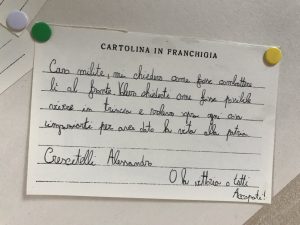 CARTOLINA IN FRANCHIGIA
Caro milite, mi chiedevo come fosse combattere
lì al fronte. Volevo chiederti come fosse possibile
vivere in trincea e volevo ogni cosa
per aver dato la vita alla patria
Crescitelli Alessandro
O la vittoria o tutti
Accoppati!